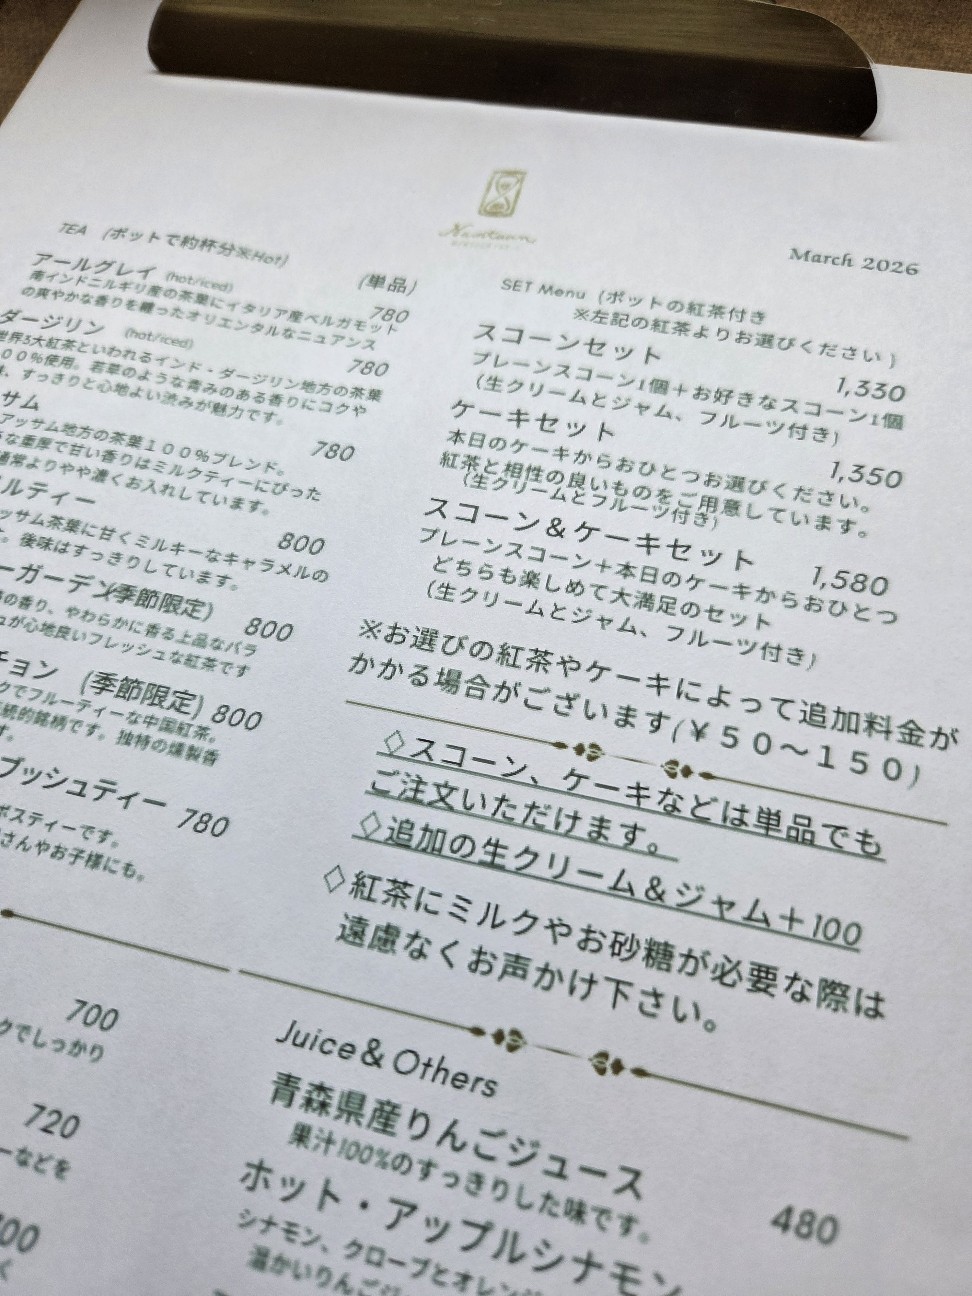 March 2026
TEA (ポットで約杯分※Hot)
(単品)
アールグレイ (hot/iced)
780
南インドニルギリ産の茶葉にイタリア産ベルガモット
の爽やかな香りを纏ったオリエンタルなニュアンス
ダージリン (hot/iced)
780
世界3大紅茶といわれるインド・ダージリン地方の茶葉
００％使用。若草のような青みのある香りにコクや
、すっきりと心地よい渋みが魅力です。
サム
780
アッサム地方の茶葉１００％ブレンド。
な重厚で甘い香りはミルクティーにぴった
通常よりやや濃くお入れしています。
ルティー
800
ッサム茶葉に甘くミルキーなキャラメルの
。後味はすっきりしています。
ーガーデン(季節限定)
800
の香り、やわらかに香る上品なバラ
が心地良いフレッシュな紅茶です
チョン (季節限定) 800
クでフルーティーな中国紅茶。
統的銘柄です。独特の燻製香
す。
ブッシュティー 780
ボスティーです。
さんやお子様にも。
700
クでしっかり
720
ーなどを
00
く
SET Menu (ポットの紅茶付き
※左記の紅茶よりお選びください)
スコーンセット
1,330
プレーンスコーン1個＋お好きなスコーン1個
(生クリームとジャム、フルーツ付き)
ケーキセット
1,350
本日のケーキからおひとつお選びください。
紅茶と相性の良いものをご用意しています。
(生クリームとフルーツ付き)
スコーン＆ケーキセット
1,580
プレーンスコーン＋本日のケーキからおひとつ
どちらも楽しめて大満足のセット
(生クリームとジャム、フルーツ付き)
※お選びの紅茶やケーキによって追加料金が
かかる場合がございます(￥５０～１５０)
◇スコーン、ケーキなどは単品でも
ご注文いただけます。
◇追加の生クリーム＆ジャム＋100
◇紅茶にミルクやお砂糖が必要な際は
遠慮なくお声かけ下さい。
Juice＆Others
青森県産りんごジュース
480
果汁100%のすっきりした味です。
ホット・アップルシナモン
シナモン、クローブとオレンジ
温かいりんごジ